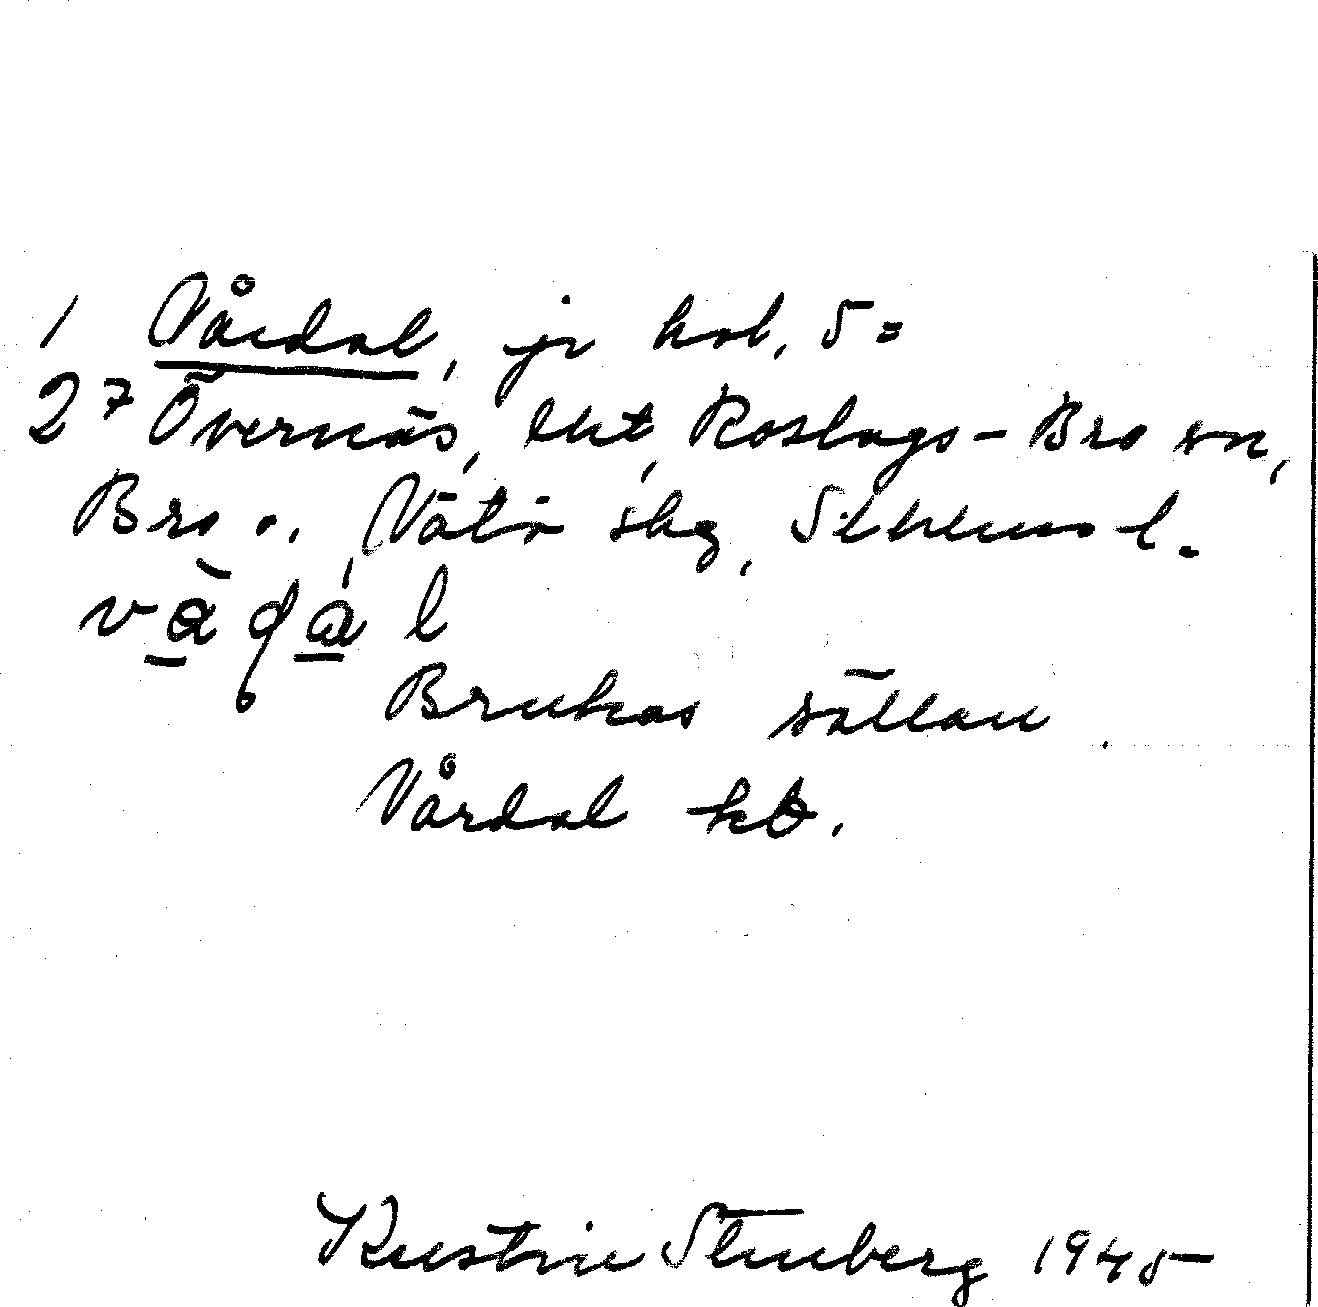 1 Vårdal, jr kol, 5=
2⁷ Övernäs, ent, Roslags-Bro sn,
Bro o. Vätö skg, Sthlms l.
Brukas sällan
Vårdal kb.
Kerstin Stenberg 1945